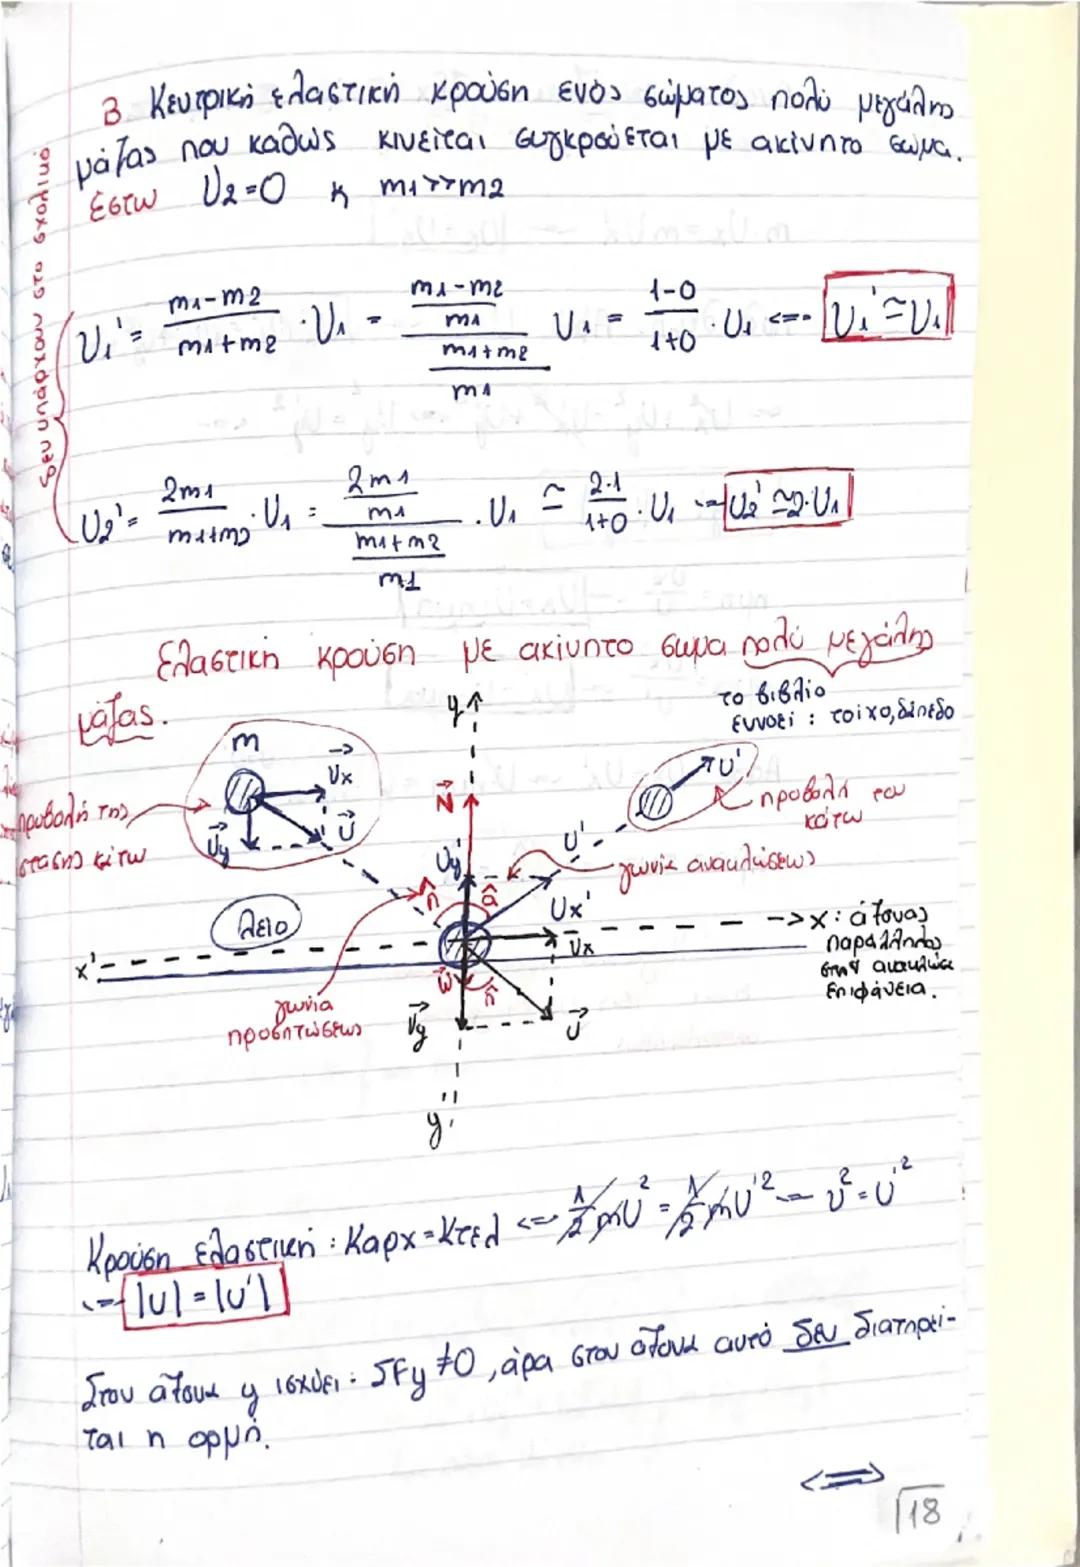 Β Κεντρική ελαστική κρούση ενός σώματος πολύ μεγάλης
μάζας που καθώς κινείται συγκρούεται με ακίνητο σώμα.
Έστω U2=0 κ m1>>m2
Δεν υπάρχουν στο σχολικό
U1' = (m1-m2)/(m1+m2) · U1 = ((m1-m2)/m1)/((m1+m2)/m1) U1 = (1-0)/(1+0) · U1 <=> U1' ≃ U1
U2' = 2m1/(m1+m2) · U1 = (2m1/m1)/((m1+m2)/m1) · U1 ≃ 2·1/(1+0) · U1 → U2' ≃ 2·U1
Ελαστική κρούση με ακίνητο σώμα πολύ μεγάλης
μάζας.
το βιβλίο
εννοεί : τοίχο, δάπεδο
m
Ux
U
Uy
προβολή της
στάσης κάτω
y
N
U'
προβολή του
κάτω
U'
γωνία ανακλάσεως
Uy'
π
α
Ux'
Λείο
x'
Ux
x: άξονας
παράλληλος
στην ανακλώσα
επιφάνεια.
ω
π
γωνία
προσπτώσεως
Uy
U
y'
Κρούση ελαστική : Καρχ=Κτελ <=> 1/2 mU² = 1/2 mU'² → U²=U'²
<=> |U|=|U'|
Στον άξονα y ισχύει : ΣFy ≠0, άρα στον άξονα αυτό δεν διατηρεί-
ται η ορμή.
<=>
18